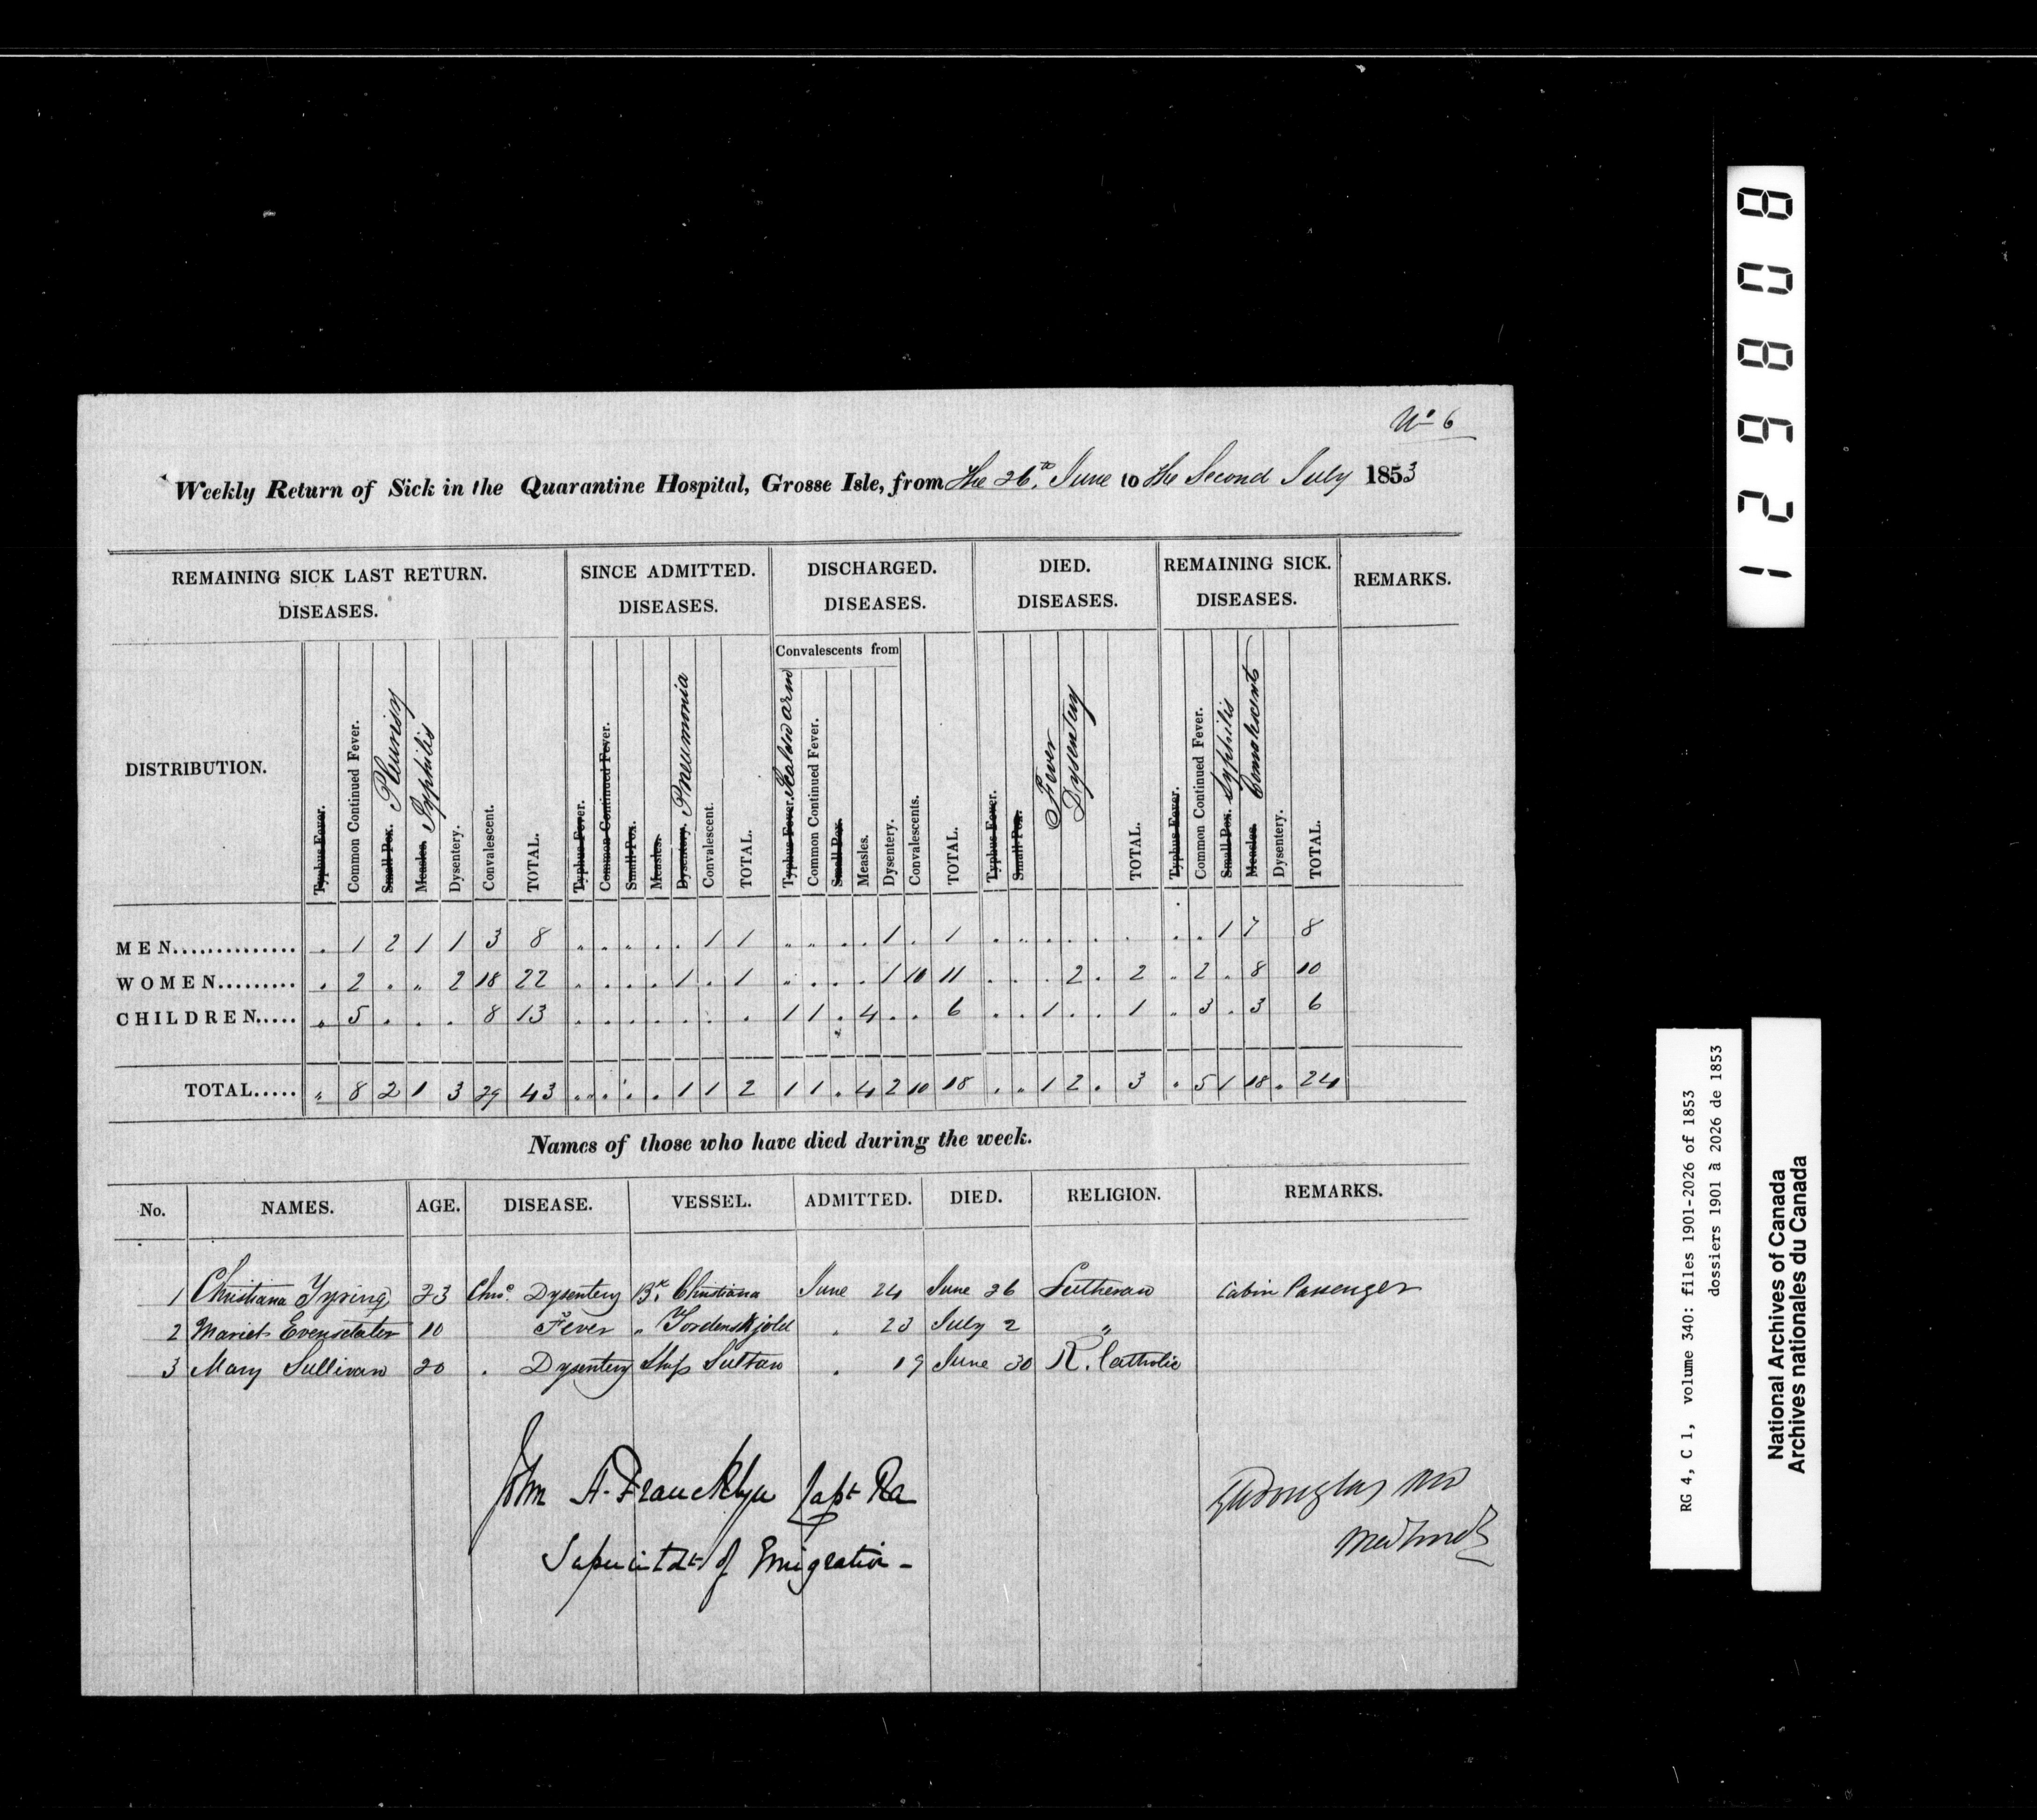 No 6
Weekly Return of Sick in the Quarantine Hospital, Grosse Isle, from the 26th. June to the Second July 1853
REMAINING SICK LAST RETURN. SINCE ADMITTED. DISCHARGED. DIED. REMAINING SICK. REMARKS.
DISEASES. DISEASES. DISEASES. DISEASES. DISEASES.
Convalescents from
DISTRIBUTION. Typhus Fever. Common Continued Fever. Small Pox. Pleurisy Measles. Syphilis Dysentery. Convalescent. TOTAL. Typhus Fever. Common Continued Fever. Small Pox. Measles. Dysentery. Pneumonia Convalescent. TOTAL. Typhus Fever. Scald arm Common Continued Fever. Small Pox. Measles. Dysentery. Convalescents. TOTAL. Typhus Fever. Small Pox. Fever Dysentery TOTAL. Typhus Fever. Common Continued Fever. Small Pox. Syphilis Measles. Convalescent Dysentery. TOTAL.
MEN.............. . 1 2 1 1 3 8 " . " . . 1 1 " " . . 1 . 1 . " . . . . . . 1 7 8
WOMEN......... . 2 . " 2 18 22 " . . . 1 . 1 " . . . 1 10 11 . . . 2 . 2 " 2 . 8 10
CHILDREN..... " 5 . . . 8 13 . . . . . . . 1 1 . 4 . . 6 . . 1 . . 1 " 3 . 3 6
TOTAL..... " 8 2 1 3 29 43 " . . . 1 1 2 1 1 . 4 2 10 18 . . 1 2 . 3 . 5 1 18 . 24
Names of those who have died during the week.
No. NAMES. AGE. DISEASE. VESSEL. ADMITTED. DIED. RELIGION. REMARKS.
1 Christiana Ypsing 23 Chrc. Dysentery Bk. Christiana June 24 June 26 Lutheran Cabin Passenger
2 Mariet Evensdater 10 Fever " Tordenskjold " 23 July 2 "
3 Mary Sullivan 20 . Dysentery Ship Sultan " 19 June 30 R. Catholic
John A. Francklyn Capt Ra
Superintdt of Emigration -
GM Douglas MD
Med Supt
128608
RG 4, C 1, volume 340: files 1901-2026 of 1853
dossiers 1901 à 2026 de 1853
National Archives of Canada
Archives nationales du Canada